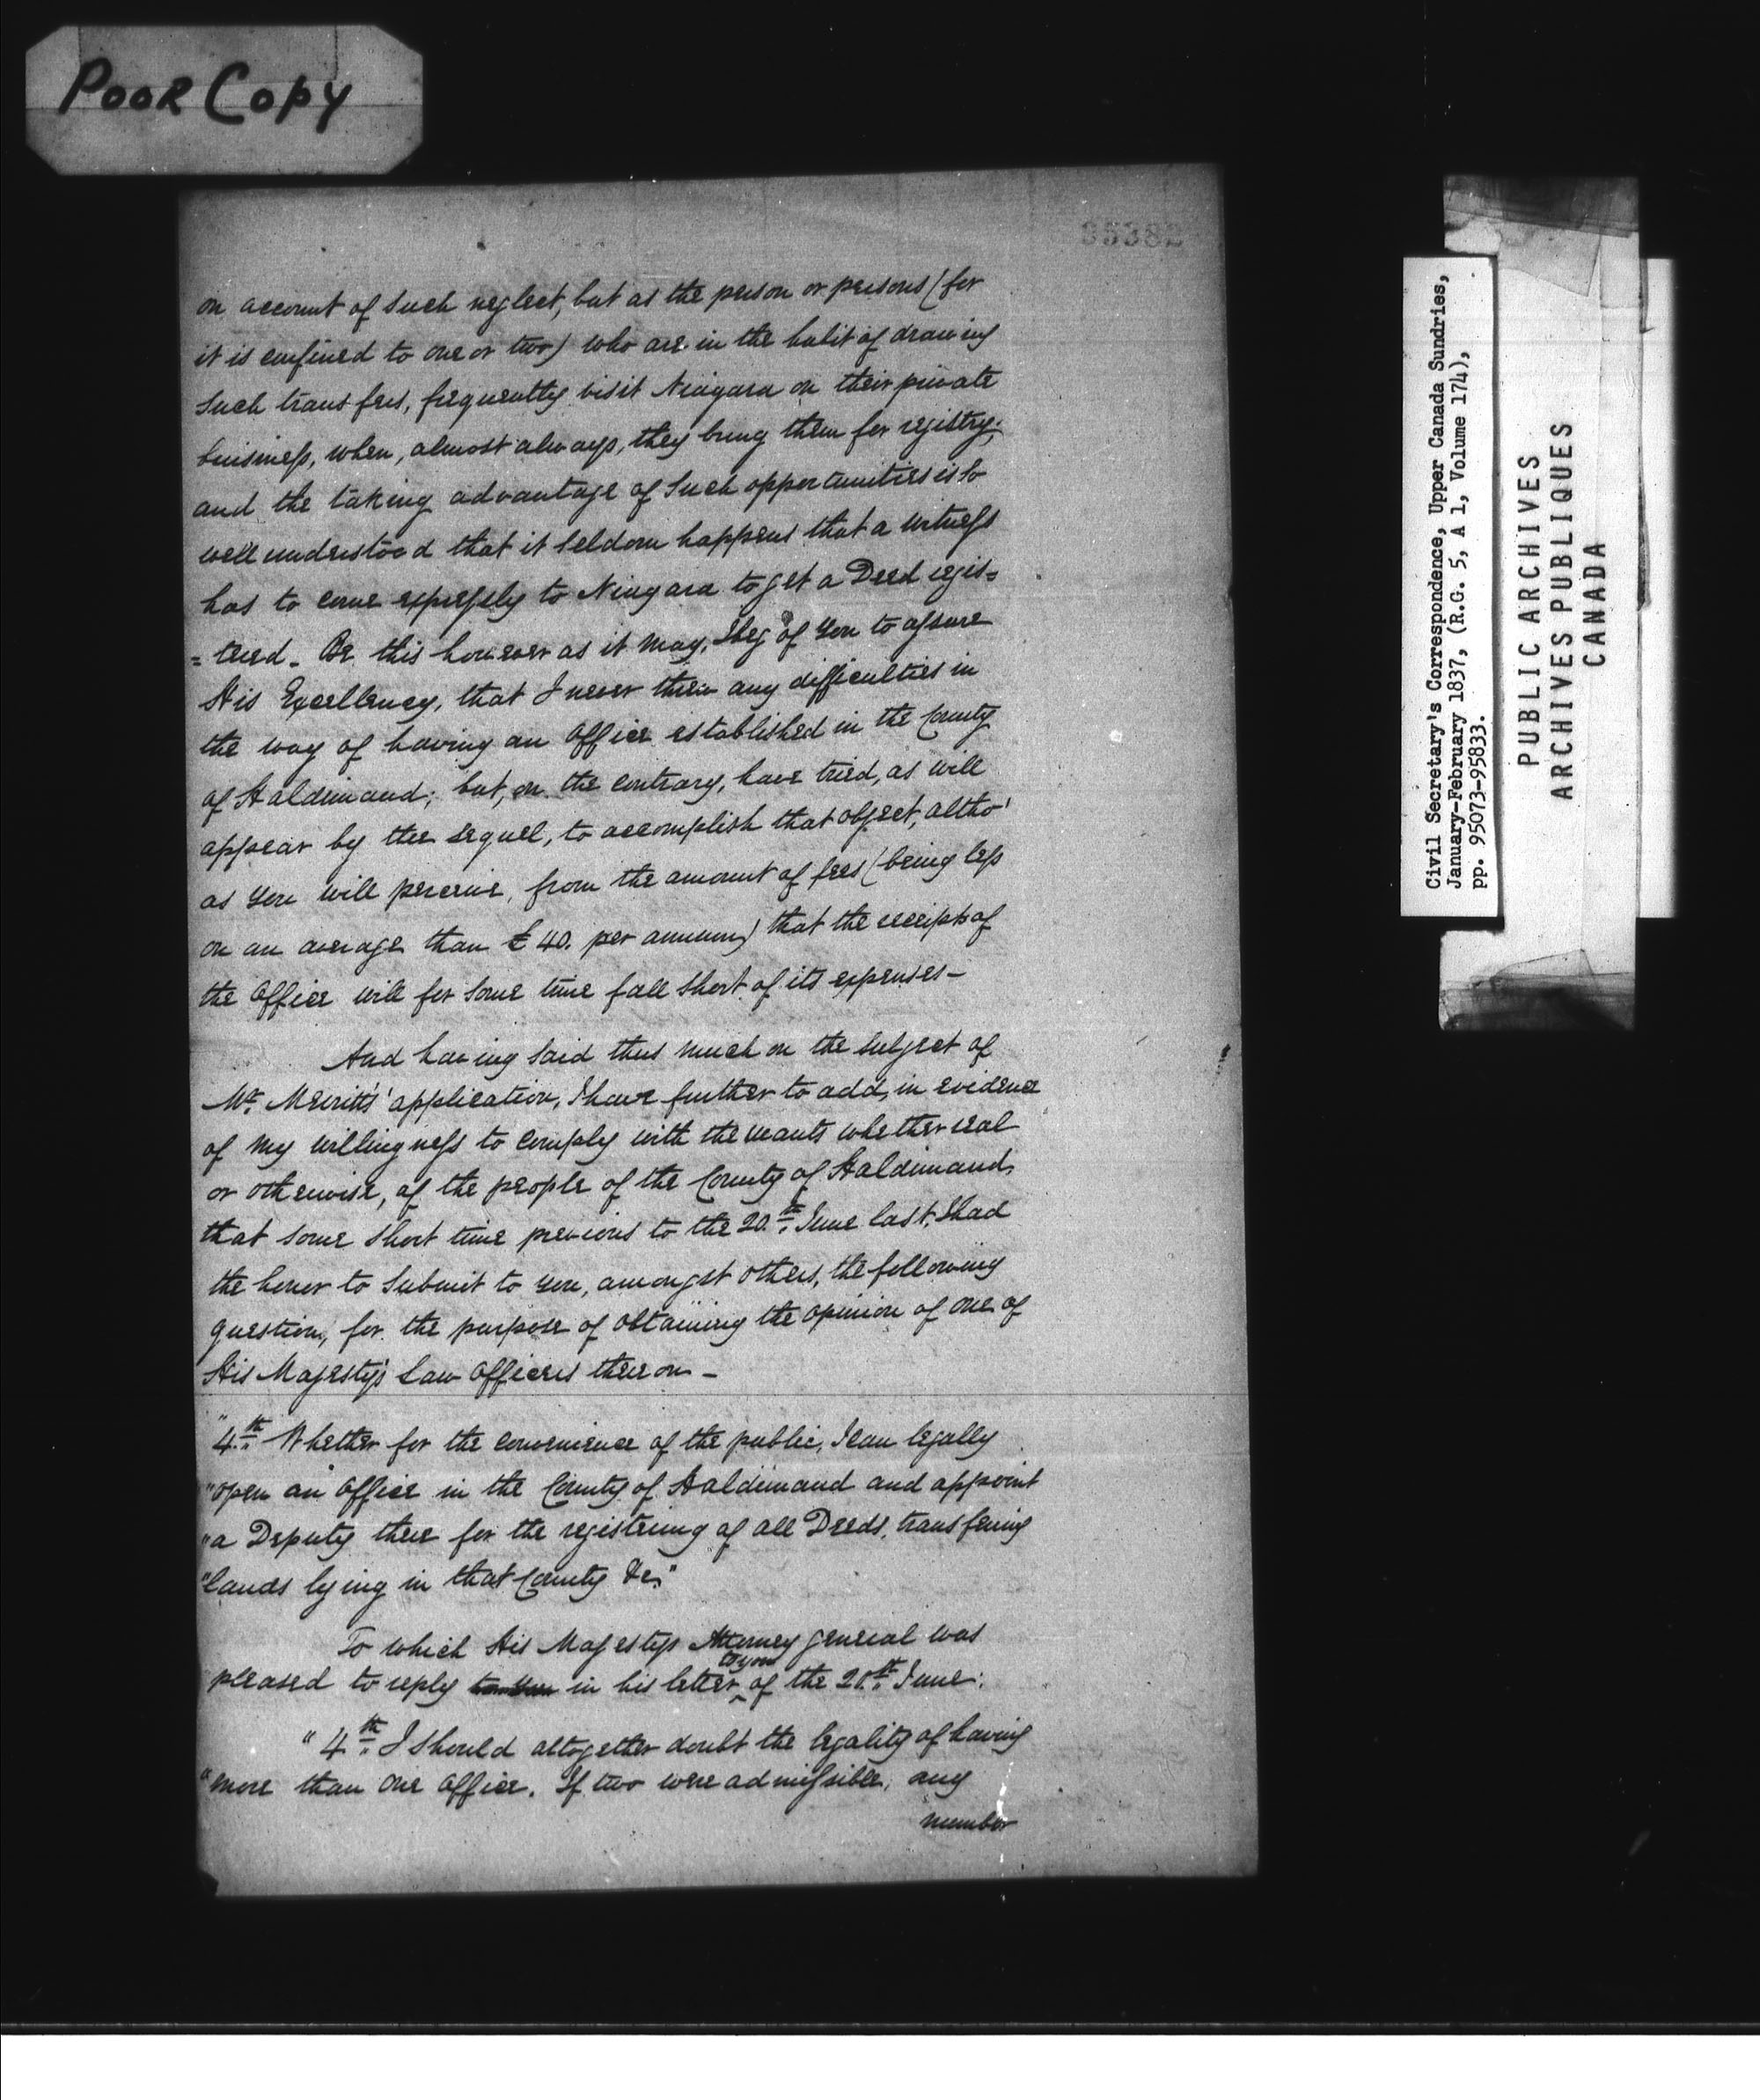 Poor Copy
95382
on account of such neglect, but as the person or persons (for
it is confined to one or two) who are in the habit of drawing
such transfers, frequently visit Niagara on their private
buisiness, when, almost always, they bring them for registry;
and the taking advantage of such opportunities is so
well understood that it seldom happens that a witness
has to come expressly to Niagara to get a Deed regis=
=tered. Be this however as it may, I beg of you to assure
His Excellency, that I never threw any difficulties in
the way of having an Office established in the County
of Haldimand; but, on the contrary, have tried, as will
appear by the sequel, to accomplish that object, altho'
as you will perceive, from the amount of fees (being less
on an average than £40. per annum) that the receipts of
the Office will for some time fall short of its expenses—
And having said thus much on the subject of
Mr. Merritts' application, I have further to add, in evidence
of my willingness to comply with the wants whether real
or otherwise, of the people of the County of Haldimand,
that some short time previous to the 20.th June last, I had
the honor to submit to you, amongst others, the following
question, for the purpose of obtaining the opinion of one of
His Majesty's Law Officers thereon—
"4.th Whether for the convenience of the public, I can legally
"open an Office in the County of Haldimand and appoint
"a Deputy there for the registering of all Deeds, transfering
"lands lying in that County &c."
To which His Majestys Attorney general was
to you
pleased to reply to you in his letter ^ of the 20.th June:
"4.th I should altogether doubt the legality of having
"more than one Office. If two were admissible, any
number
Civil Secretary's Correspondence, Upper Canada Sundries,
January-February 1837, (R.G. 5, A 1, Volume 174),
pp. 95073-95833.
PUBLIC ARCHIVES
ARCHIVES PUBLIQUES
CANADA